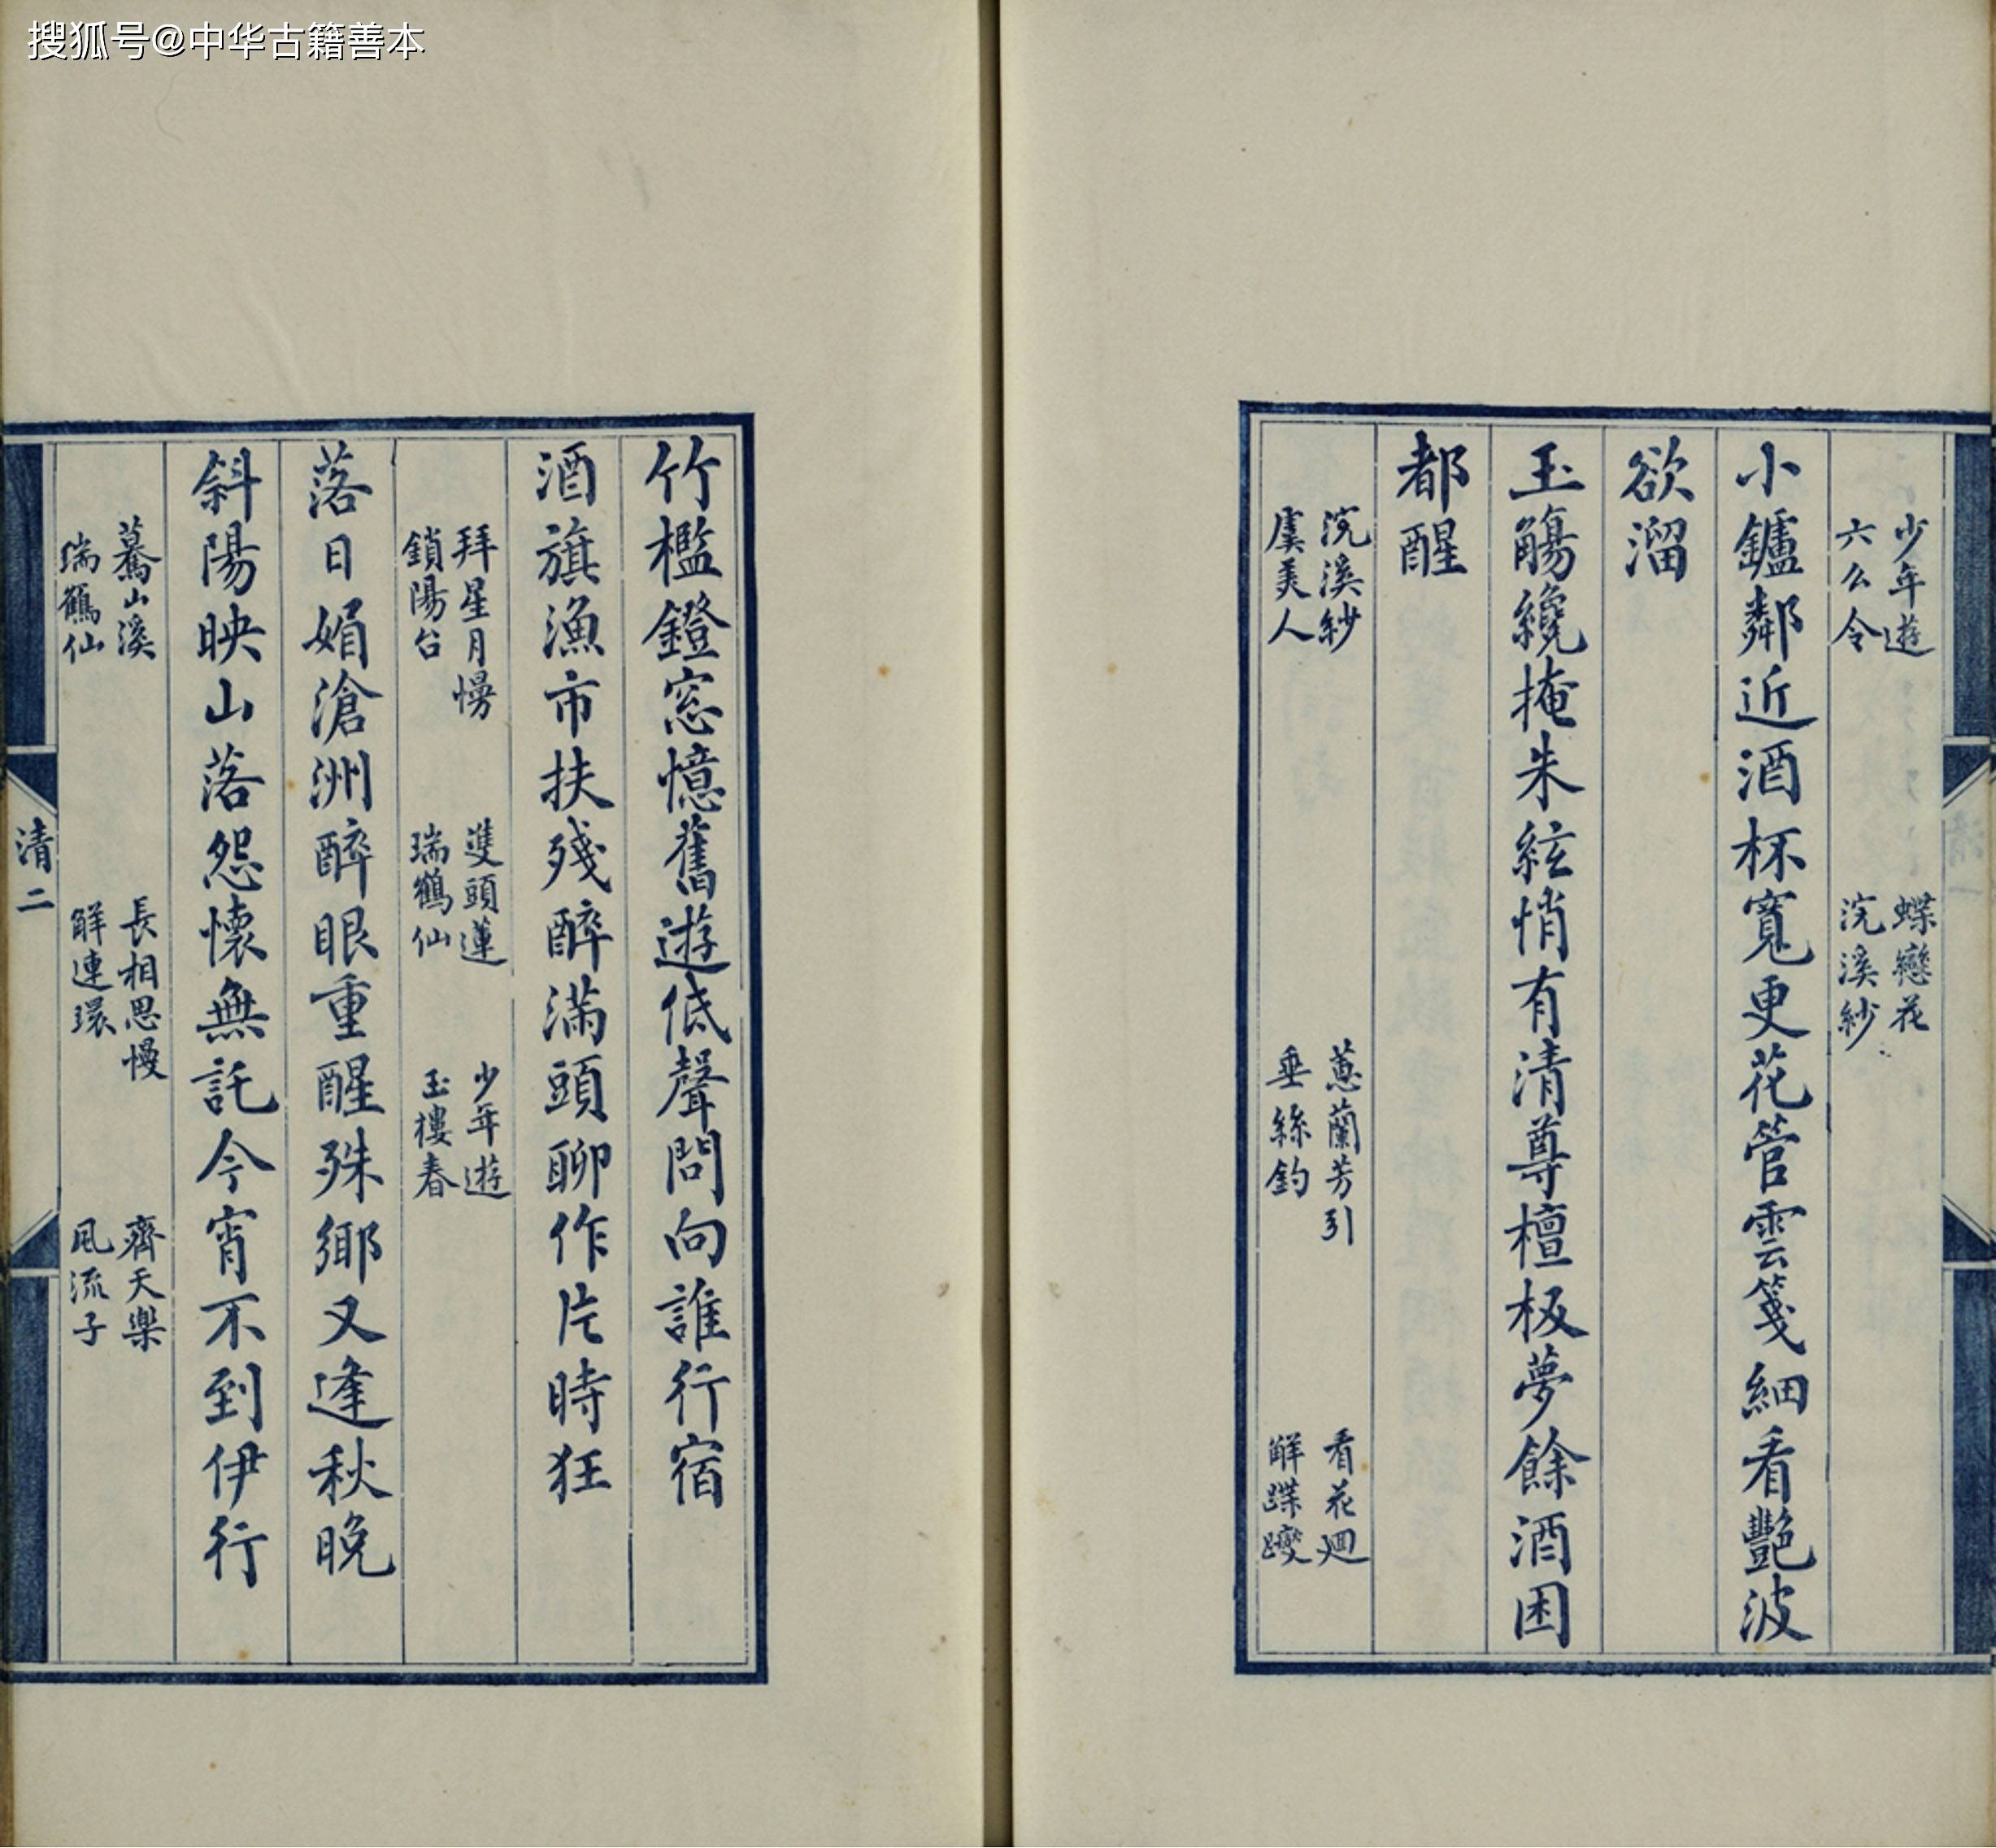 搜狐号@中华古籍善本
少年遊 蝶戀花
六么令 浣溪紗
小鑪鄰近酒杯寬更花管雲箋細看艷波
欲溜
玉觴纔掩朱絃悄有清尊檀板夢餘酒困
都醒
浣溪紗 蕙蘭芳引 看花迴
虞美人 垂絲釣 解蹀躞
竹檻鐙窓憶舊遊低聲問向誰行宿
酒旗漁市扶殘醉滿頭聊作片時狂
拜星月慢 雙頭蓮 少年遊
鎖陽台 瑞鶴仙 玉樓春
落日媚滄洲醉眼重醒殊鄉又逢秋晚
斜陽映山落怨懷無託今宵不到伊行
驀山溪 長相思慢 齊天樂
瑞鶴仙 解連環 風流子
清二